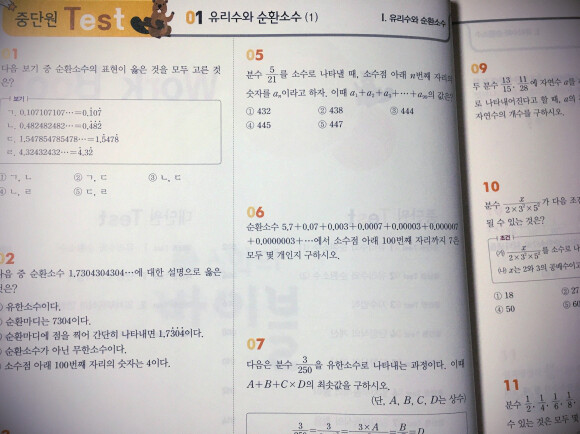 중단원 Test
01 유리수와 순환소수 (1)
I. 유리수와 순환소수
01
다음 보기 중 순환소수의 표현이 옳은 것을 모두 고른 것
은?
보기
ㄱ. 0.107107107⋯=0.1̇07̇
ㄴ. 0.482482482⋯=0.4̇82̇
ㄷ. 1.547854785478⋯=1.5̇478̇
ㄹ. 4.32432432⋯=4.3̇2
① ㄱ, ㄴ ② ㄱ, ㄷ ③ ㄴ, ㄷ
④ ㄴ, ㄹ ⑤ ㄷ, ㄹ
02
다음 중 순환소수 1.7304304304⋯에 대한 설명으로 옳은
것은?
유한소수이다.
순환마디는 7304이다.
순환마디에 점을 찍어 간단히 나타내면 1.73̇0̇4̇이다.
순환소수가 아닌 무한소수이다.
소수점 아래 100번째 자리의 숫자는 4이다.
05
분수 5/21를 소수로 나타낼 때, 소수점 아래 n번째 자리의
숫자를 aₙ이라고 하자. 이때 a₁+a₂+a₃+⋯+ 의 값은?
① 432 ② 438 ③ 444
④ 445 ⑤ 447
06
순환소수 5.7+0.07+0.003+0.0007+0.00003+0.000007
+0.0000003+⋯에서 소수점 아래 100번째 자리까지 7은
모두 몇 개인지 구하시오.
07
다음은 분수 3/250을 유한소수로 나타내는 과정이다. 이때
A+B+C×D의 최솟값을 구하시오.
(단, A, B, C, D는 상수)
3/250= =3×A/ =B/ =D
09
두 분수 13/15, 11/28에 자연수 a를
로 나타내어진다고 할 때, a의
자연수의 개수를 구하시오.
10
분수 x/2×3²×5²가 다음 조건
될 수 있는 것은?
조건
㈎ x/2×3²×5²를 소수로 나
㈏ x는 2와 3의 공배수이고
① 18 ② 27
④ 50 ⑤ 60
11
분수 1/2, 1/4, 1/6, 1/8,
수 있는 것은 모두 몇